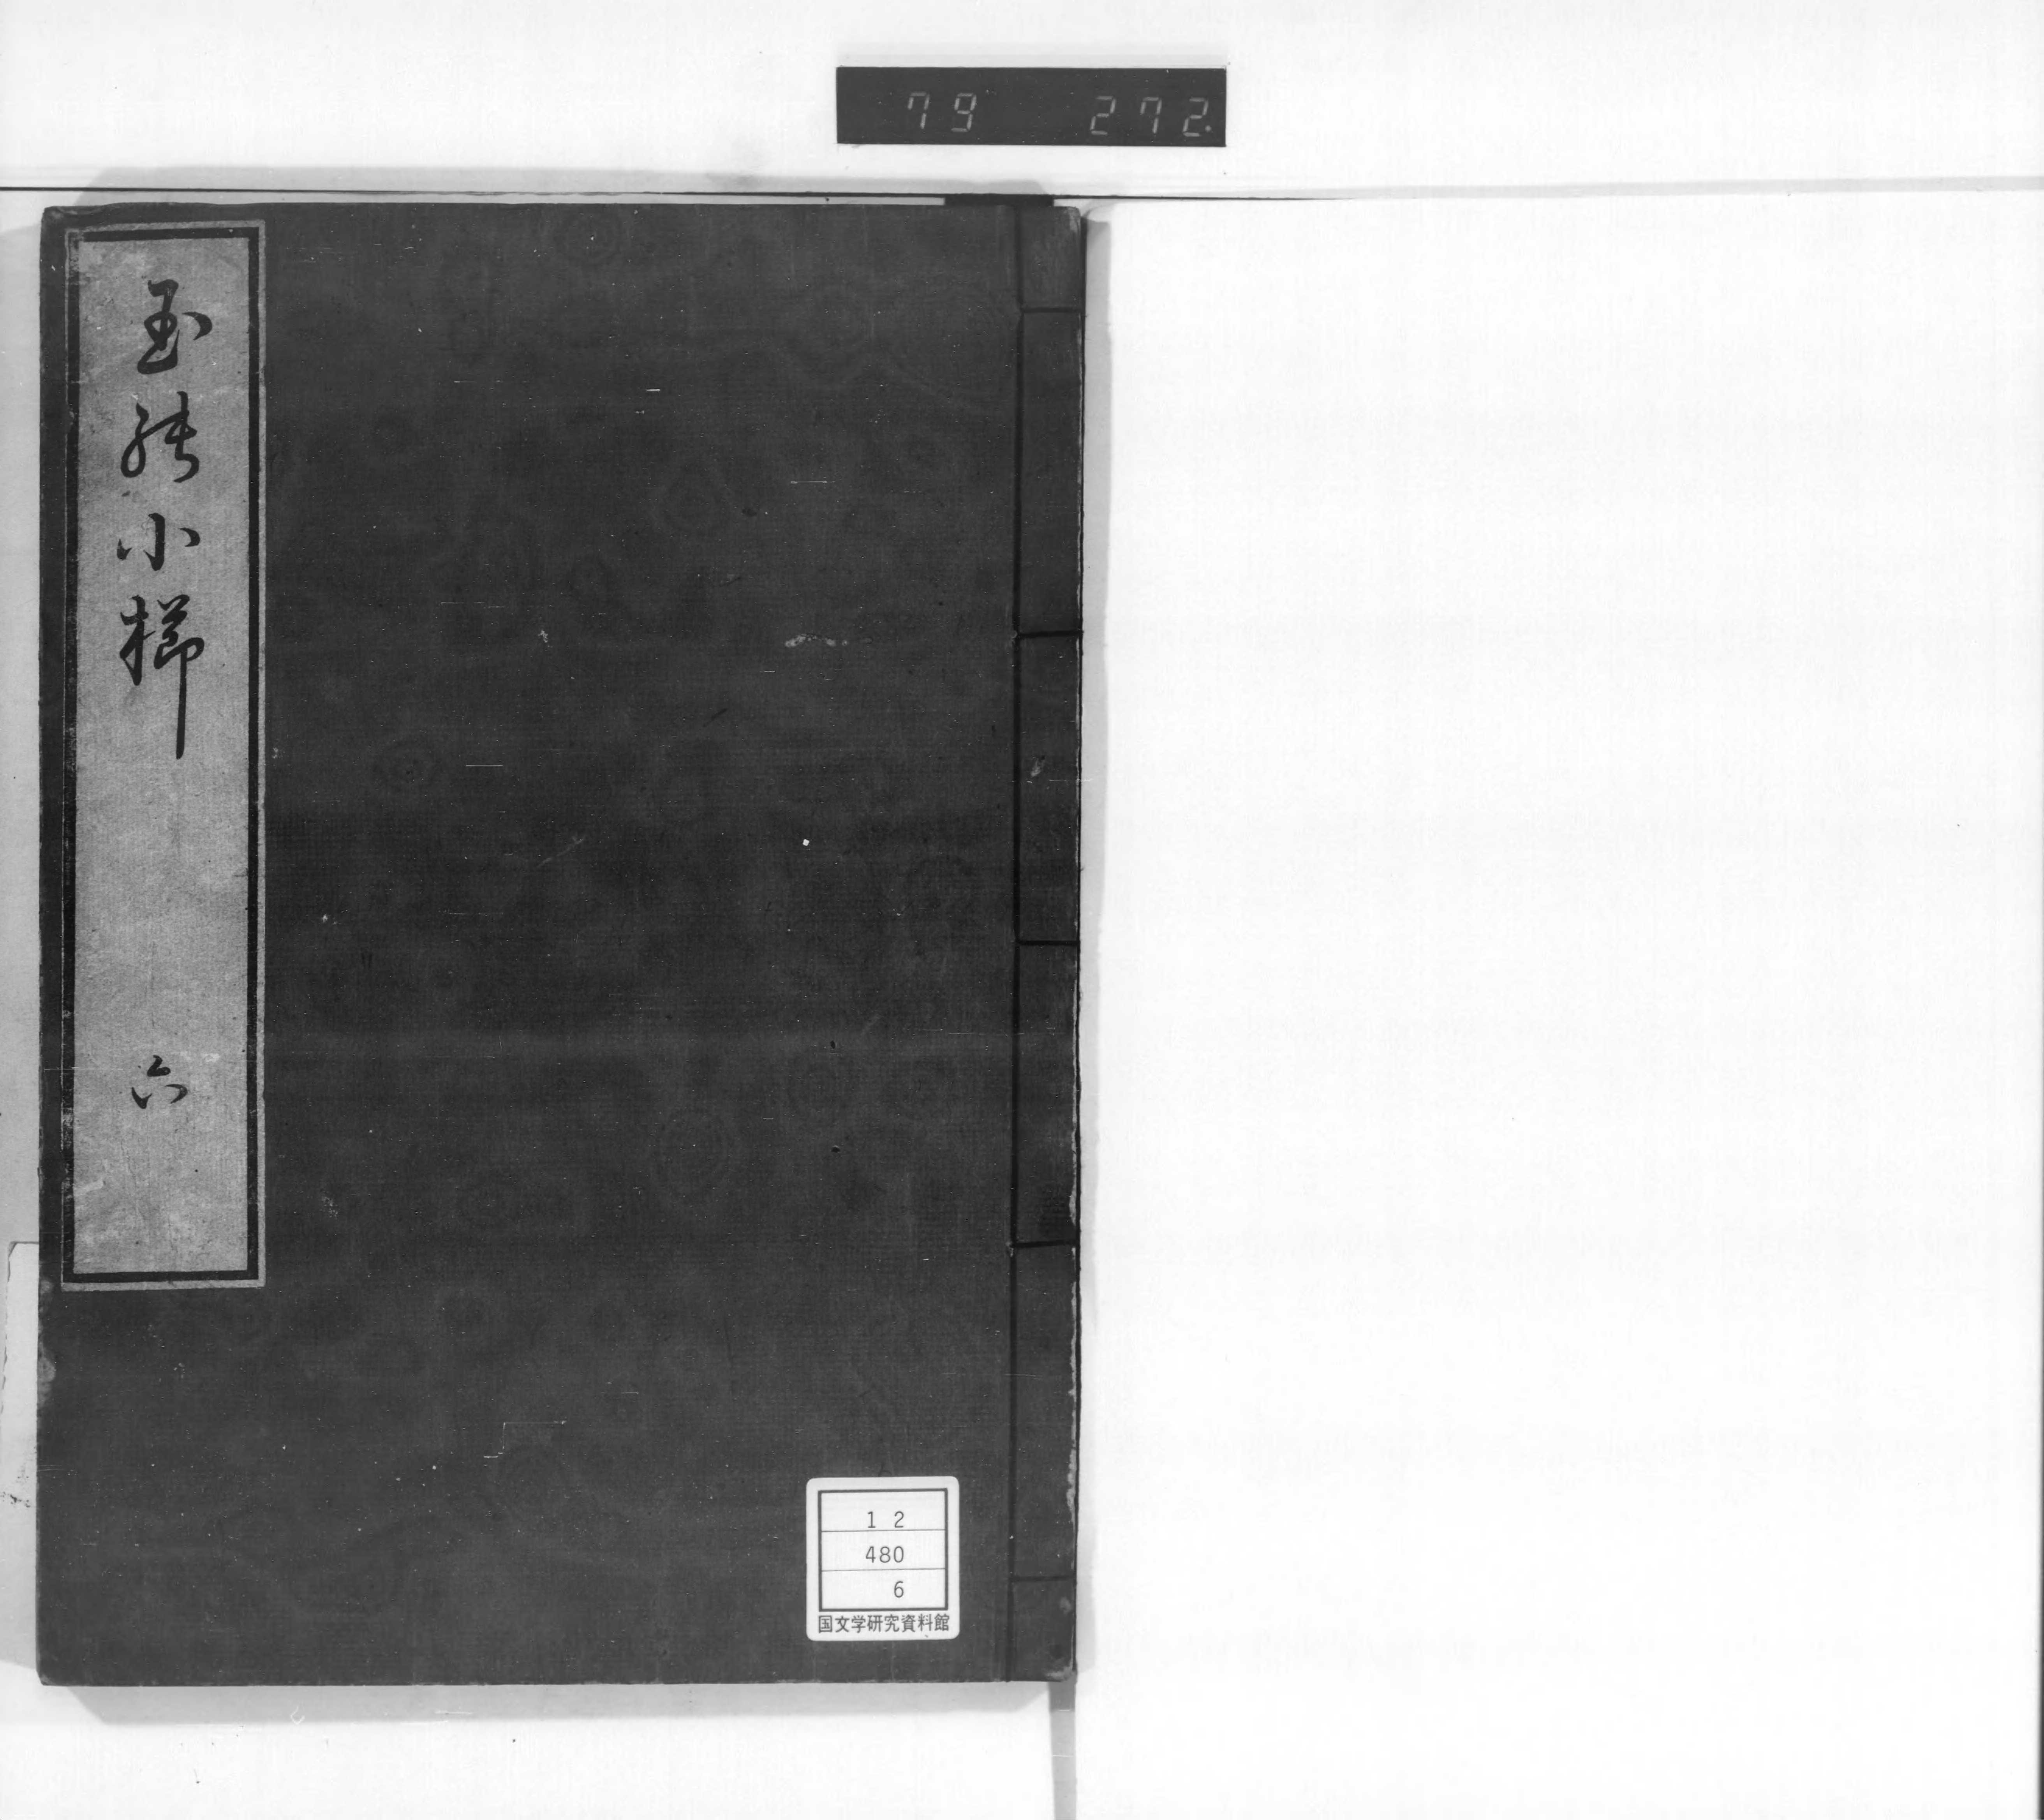 79 272.
玉能小櫛
六
12
480
6
国文学研究資料館